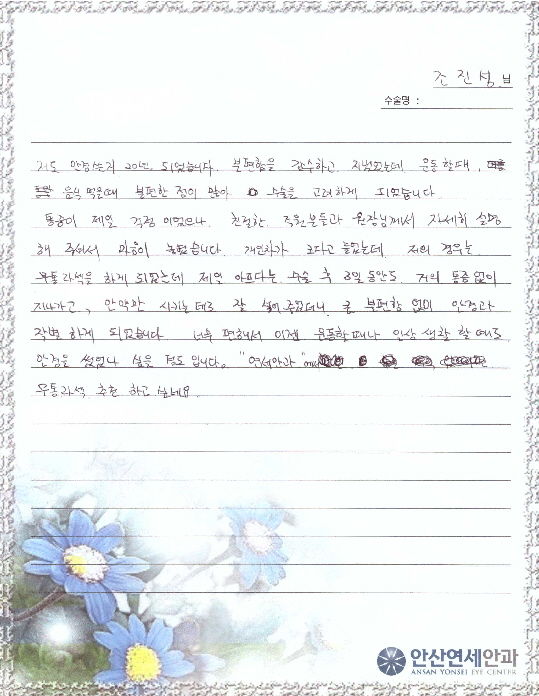 조진성 님
수술명 :
저도 안경쓴지 20년 되었습니다. 불편함을 감수하고 지냈었는데 운동할때,
음식 먹을때 불편한 점이 많아 수술을 고려하게 되었습니다.
통증이 제일 걱정 이었으나, 친절한 직원분들과 원장님께서 자세히 설명
해 주셔서 마음이 놓였습니다. 개인차가 크다고 들었는데 저의 경우는
무통라섹을 하게 되었는데 제일 아프다는 수술 후 3일동안도 거의 통증 없이
지나가고, 안약만 시키는 데로 잘 넣어 주었더니 큰 불편함 없이 안경과
작별 하게 되었습니다 너무 편해서 이젠 운동할때나 일상 생활 할 때도
안경을 썼었나 싶을 정도 입니다. "연세안과"
무통라섹 추천 하고 싶네요.
안산연세안과
ANSAN YONSEI EYE CENTER